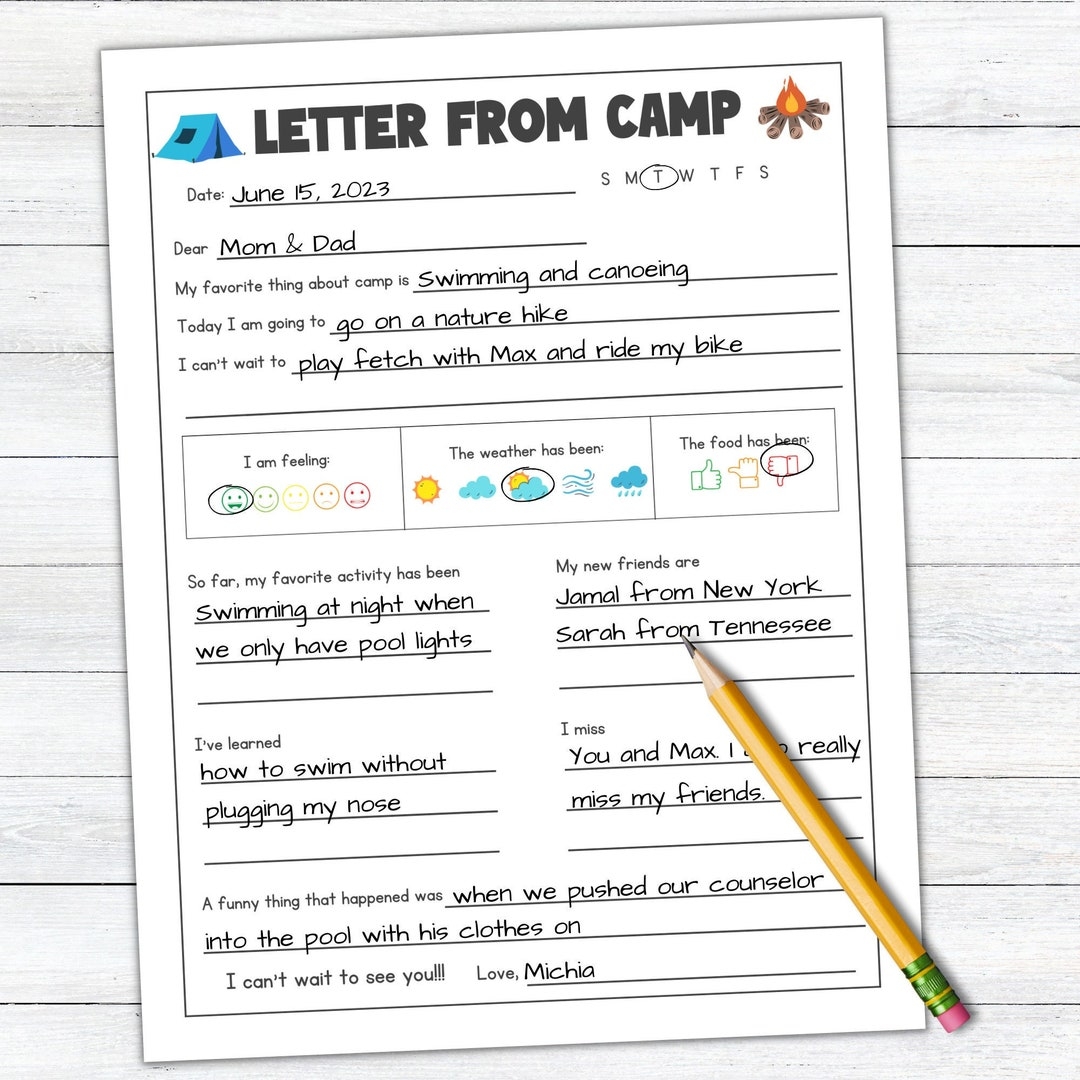 LETTER FROM CAMP
Date: June 15, 2023 S M T W T F S
Dear Mom & Dad
My favorite thing about camp is Swimming and canoeing
Today I am going to go on a nature hike
I can't wait to play fetch with Max and ride my bike
I am feeling:
The weather has been:
The food has been:
So far, my favorite activity has been
Swimming at night when
we only have pool lights
My new friends are
Jamal from New York
Sarah from Tennessee
I've learned
how to swim without
plugging my nose
I miss
You and Max. I really
miss my friends.
A funny thing that happened was when we pushed our counselor
into the pool with his clothes on
I can't wait to see you!!! Love, Michia